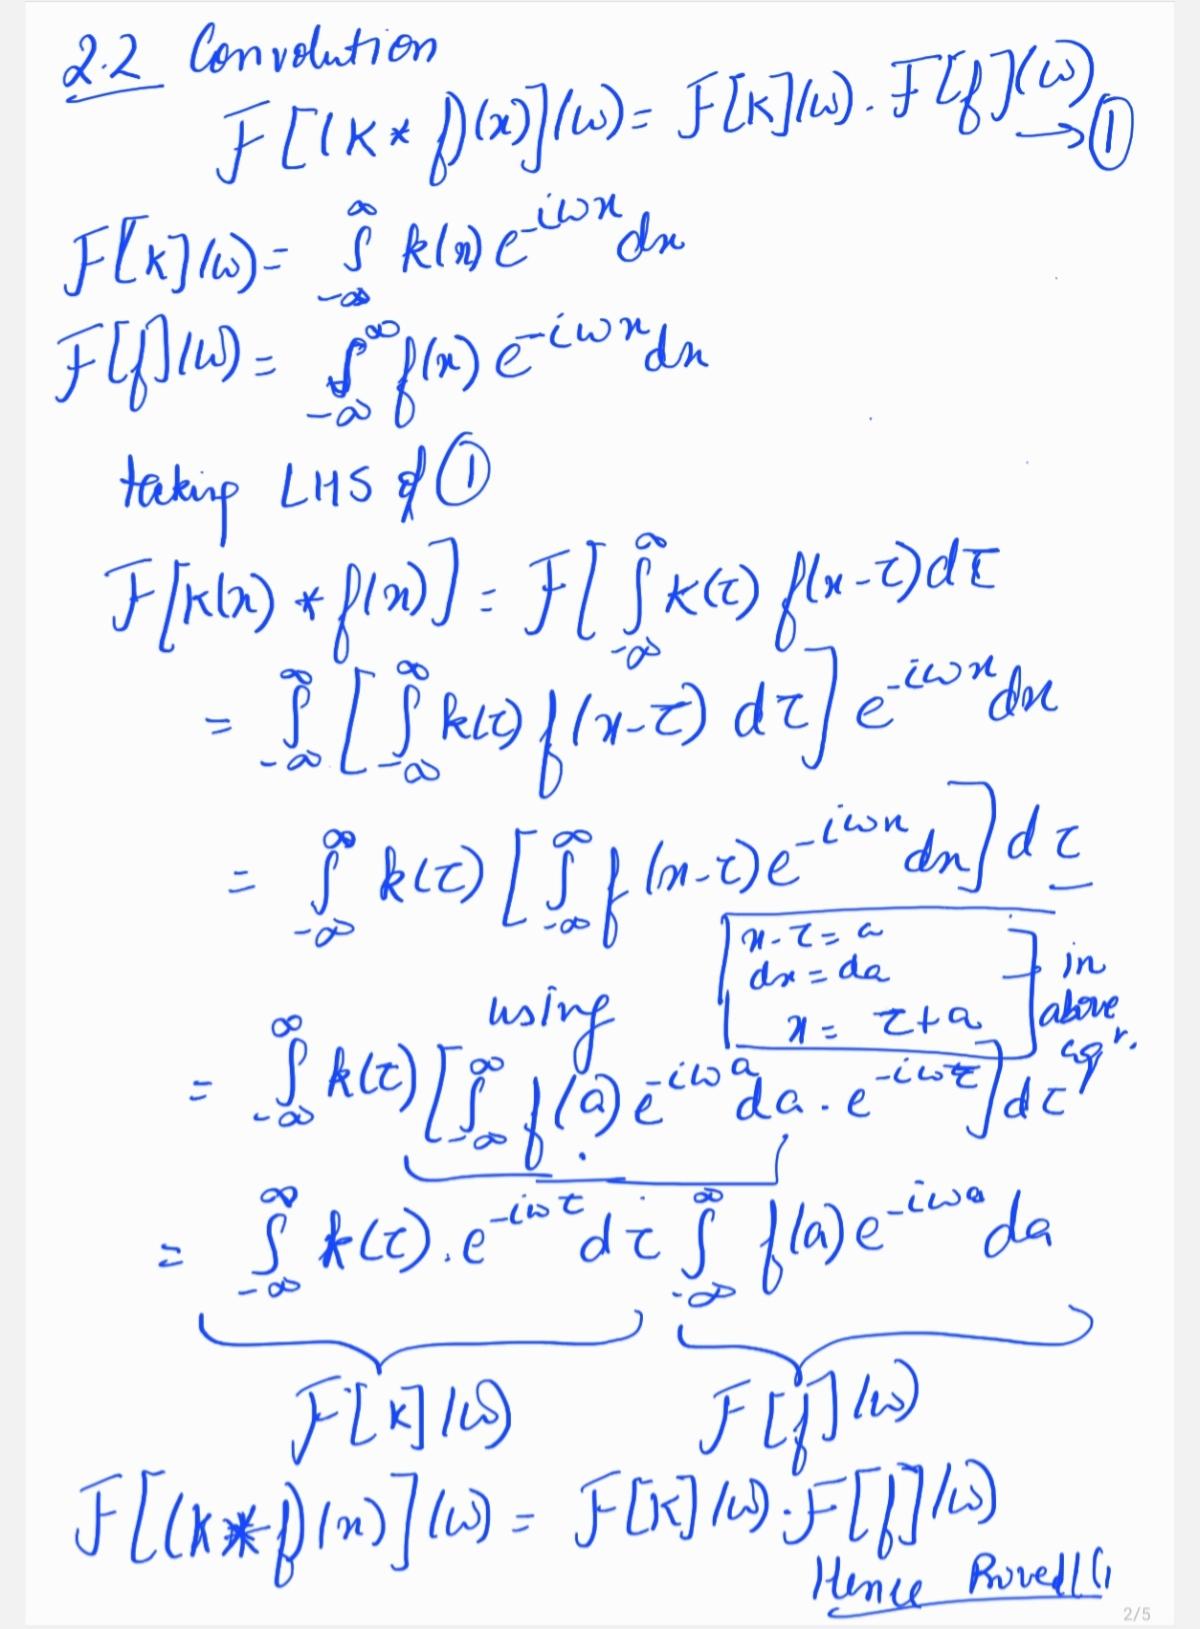 2.2 Convolution
F[(K * f)(x)](ω) = F[K](ω) . F[f](ω) → ①
F[K](ω) = ∫_{-∞}^{∞} k(x) e^{-iωx} dx
F[f](ω) = ∫_{-∞}^{∞} f(x) e^{-iωx} dx
taking LHS of ①
F[K(x) * f(x)] = F[ ∫_{-∞}^{∞} K(τ) f(x-τ) dτ
= ∫_{-∞}^{∞} [ ∫_{-∞}^{∞} k(τ) f(x-τ) dτ ] e^{-iωx} dx
= ∫_{-∞}^{∞} k(τ) [ ∫_{-∞}^{∞} f(x-τ) e^{-iωx} dx ] dτ
using
x-τ = a
dx = da
x = τ+a
in
above
eqn.
= ∫_{-∞}^{∞} k(τ) [ ∫_{-∞}^{∞} f(a) e^{-iωa} da . e^{-iωτ} ] dτ
= ∫_{-∞}^{∞} k(τ) . e^{-iωτ} dτ ∫_{-∞}^{∞} f(a) e^{-iωa} da
F[K](ω) F[f](ω)
F[(K * f)(x)](ω) = F[K](ω) . F[f](ω)
Hence Proved
2/5